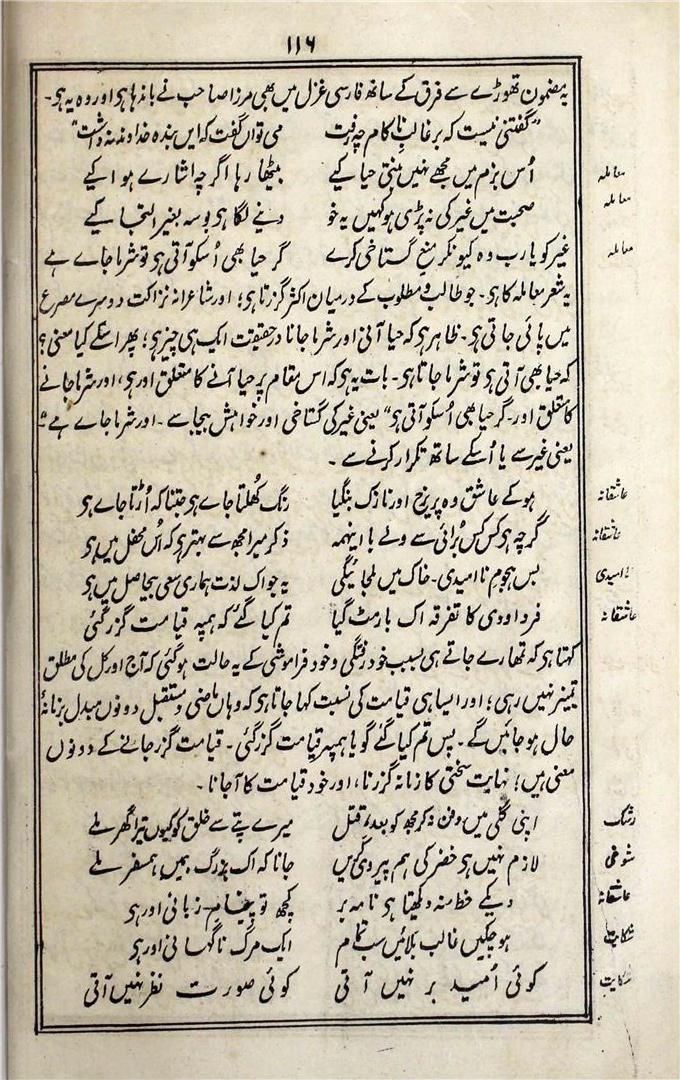 ۱۱۶
یہ مضمون تھوڑے سے فرق کے ساتھ فارسی غزل میں بھی مرزا صاحب نے باندھا ہو اور وہ یہ ہو۔
"گفتنی نیست کہ بر غالب ناکام چہ رفت می تواں گفت کہ ایں بندہ خداوند نہ داشت"
معاملہ اُس بزم میں مجھے نہیں بنتی حیا کیے بیٹھا رہا اگرچہ اشارے ہوا کیے
معاملہ صحبت میں غیر کی نہ پڑی ہو کہیں یہ خو دینے لگا ہو بوسہ بغیر التجا کیے
معاملہ غیر کو یارب وہ کیونکر منع گستاخی کرے گر حیا بھی اُسکو آتی ہو تو شرما جاے ہے
یہ شعر معاملہ کا ہو۔ جو طالب و مطلوب کے درمیان اکثر گزرتا ہو؛ اور شاعرانہ نزاکت دوسرے مصرع
میں پائی جاتی ہو۔ ظاہر ہو کہ حیا آنی اور شرما جانا درحقیقت ایک ہی چیز ہو؛ پھر اسکے کیا معنی؟
کہ حیا بھی آتی ہو تو شرما جاتا ہو۔ بات یہ ہو کہ اس مقام پر حیا آنے کا متعلق اور ہو، اور شرما جانے
کا متعلق اور۔ گر حیا بھی اُسکو آتی ہو" یعنی غیر کی گستاخی اور خواہش بیجا سے۔ اور شرما جاے ہے"
یعنی غیر سے یا اُسکے ساتھ تکرار کرنے سے۔
عاشقانہ ہو کے عاشق وہ پریرخ اور نازک بنگیا رنگ کُھلتا جاے ہو جتنا کہ اُڑتا جاے ہو
عاشقانہ گرچہ ہو کس کس بُرائی سے ولے با اینہمہ ذکر میرا مجھ سے بہتر ہو کہ اُس محفل میں ہو
ناامیدی بس ہجوم ناامیدی۔ خاک میں ملجائیگی یہ جو اک لذت ہماری سعی بیحاصل میں ہو
عاشقانہ فردا و دی کا تفرقہ اک بار مٹ گیا تم کیا گئے کہ ہمپہ قیامت گزر گئی
کہتا ہو کہ تمھارے جاتے ہی بسبب خود رفتگی و خود فراموشی کے یہ حالت ہوگئی کہ آج اور کل کی مطلق
تمیز نہیں رہی؛ اور ایسا ہی قیامت کی نسبت کہا جاتا ہو کہ وہاں ماضی و مستقبل دونوں مبدل بزمانۂ
حال ہو جائیں گے۔ پس تم کیا گئے گویا ہمپر قیامت گزر گئی۔ قیامت گزر جانے کے دونوں
معنی ہیں؛ نہایت سختی کا زمانہ گزرنا، اور خود قیامت کا آجانا۔
رشک اپنی گلی میں دفن نہ کر مجھ کو بعد قتل میرے پتے سے خلق کو کیوں تیرا گھر ملے
شوخی لازم نہیں ہو خضر کی ہم پیروی کریں جانا کہ اک بزرگ ہمیں ہمسفر ملے
عاشقانہ دیکے خط منہ دیکھتا ہو نامہ بر کچھ تو پیغام زبانی اور ہو
شکایت ہو چکیں غالب بلائیں سب تمام ایک مرگ ناگہانی اور ہو
شکایت کوئی اُمید بر نہیں آتی کوئی صورت نظر نہیں آتی